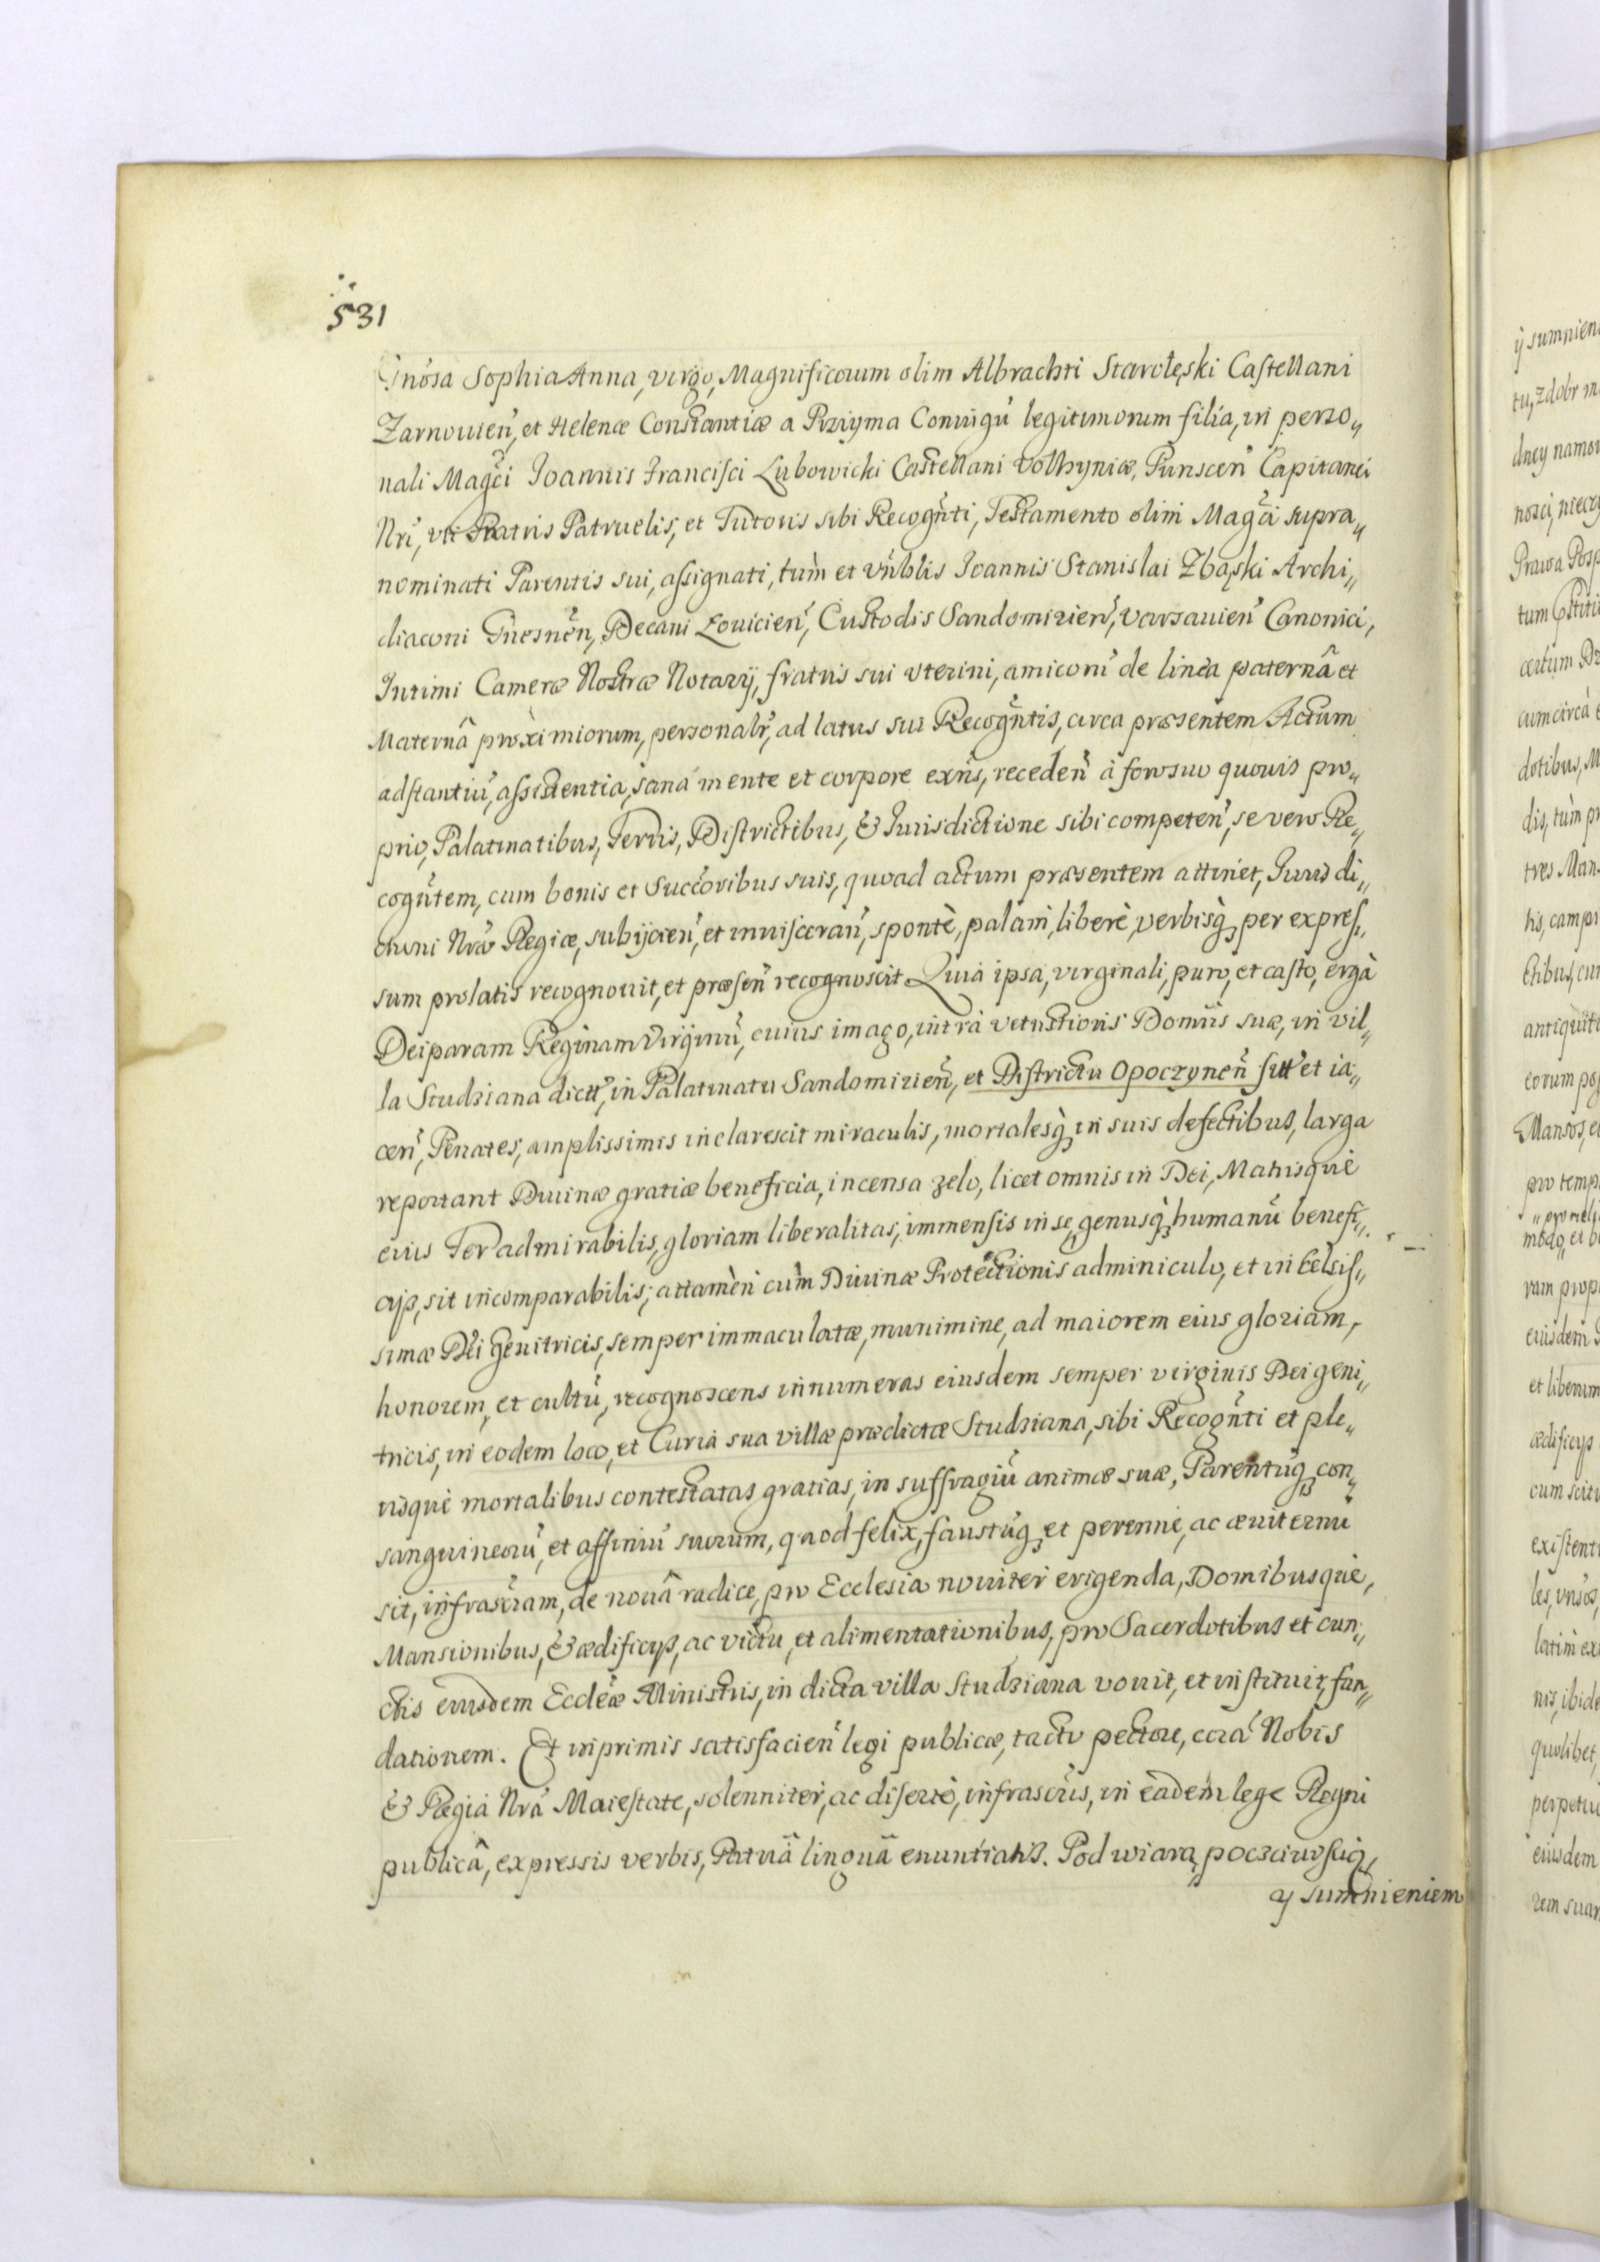 531
Gnosa Sophia Anna, virgo, Magnificorum olim Albrachti Starolęski Castellani
Zarnouien̄, et Helenæ Constantiæ a Prziyma Coniugū legitimorum filia, in perso„
nali Magc̄i Joannis Francisci Lubowicki Castellani Volhyniæ, Punscen̄ Capitanei
Nri, uti Fratris Patruelis, et Tutoris sibi Recogn̄ti, Testamento olim Magc̄i supra„
nominati Parentis sui, assignati, tùm et Vn̄blis Joannis Stanislai Zbąski Archi„
diaconi Gnesnen̄, Decani Louicien̄, Custodis Sandomirien̄, Varsauien̄ Canonici,
Intimi Cameræ Nostræ Notarij, fratris sui vterini, amicorū de linea paternâ et
Maternâ proximiorum, personalr̄, ad latus sui Recogn̄tis, circa præsentem Actum
adstantiū, assistentia, sana mente et corpore exn̄s, receden̄ à foro suo quouis pro„
prio, Palatinatibus, Terris, Districtibus, & Jurisdictione sibi competen̄, se vero Re„
cogn̄tem, cum bonis et Succ̄oribus suis, quoad actum præsentem attinet, Jurisdi„
ctioni Nræ Regiæ, subijcien̄, et inuisceran̄, spontè, palàm, liberè, verbisq́ per expres„
sum prolatis recognouit, et præsen̄ recognoscit Quia ipsa, virginali, puro, et casto, erga
Deiparam Reginam Virginū, cuius imago, intra vetustioris Domūs suæ, in vil„
la Studziana dict̄, in Palatinatu Sandomirien̄, et Districtu Opoczynen̄ sitt̄ et ia„
cen̄, Penates, amplissimis inclarescit miraculis, mortalesq́ in suis defectibus, larga
reportant Diuinæ gratiæ beneficia, incensa zelo, licet omnis in Dei, Matrisquè
eius Ter admirabilis, gloriam liberalitas, immensis in se, genusq́ humanū benefi„
cijs, sit incomparabilis; attamèn cùm Diuinæ Protectionis adminiculo, et in Celsis„
simæ Dei genitricis, semper immaculatæ, munimine, ad maiorem eius gloriam,
honorem, et cultū, recognoscens innumeras eiusdem semper virginis Dei geni„
tricis, in eodem loco, et Curia sua villæ prædictæ Studziana, sibi Recogn̄ti et ple„
risquè mortalibus contestatas gratias, in suffragiū animæ suæ, Parentūq́ con„
sanguineorū, et affiniū suorum, quod felix, faustūq́ et perenne, ac æuiternū
sit, infrascr̄am, de nouâ radice, pro Ecclesia nouiter erigenda, Domibusquè,
Mansionibus, & ædificijs, ac victu, et alimentationibus, pro Sacerdotibus et cun„
ctis eiusdem Eccleæ Ministris, in dicta villa Studziana vouit, et instituit, fun„
dationem. Et inprimis satisfacien̄ legi publicæ, tacto pectore, corā Nobis
& Regia Nrā Maiestate, solenniter, ac disertè, infrascr̄is, in eàdem lege Regni
publicâ, expressis verbis, Patriâ linguâ enuntiatis. Pod wiarą poczciwością,
y sumnieniem